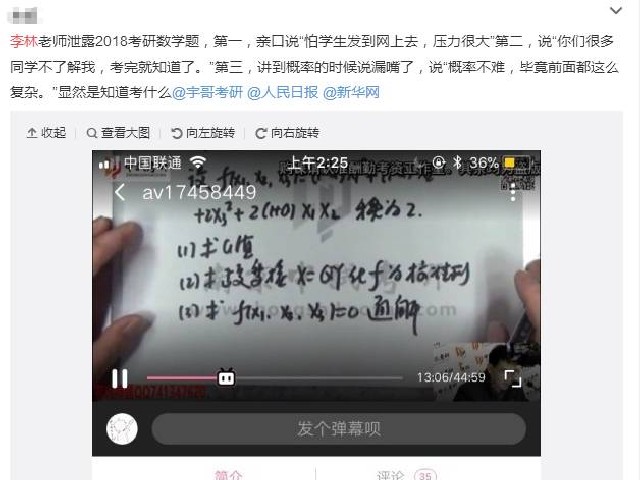 李林老师泄露2018考研数学题，第一，亲口说“怕学生发到网上去，压力很大”第二，说“你们很多
同学不了解我，考完就知道了。”第三，讲到概率的时候说漏嘴了，说“概率不难，毕竟前面都这么
复杂。”显然是知道考什么@宇哥考研 @人民日报 @新华网
收起 查看大图 向左旋转 向右旋转
中国联通 上午2:25 36%
av17458449
+2x₃²+2(1+a)x₁x₂ 秩为2.
(1) 求a值
(2) 求
(3) 求 f(x₁,x₂,x₃)=0 通解
13:06/44:59
发个弹幕呗
简介 评论 35